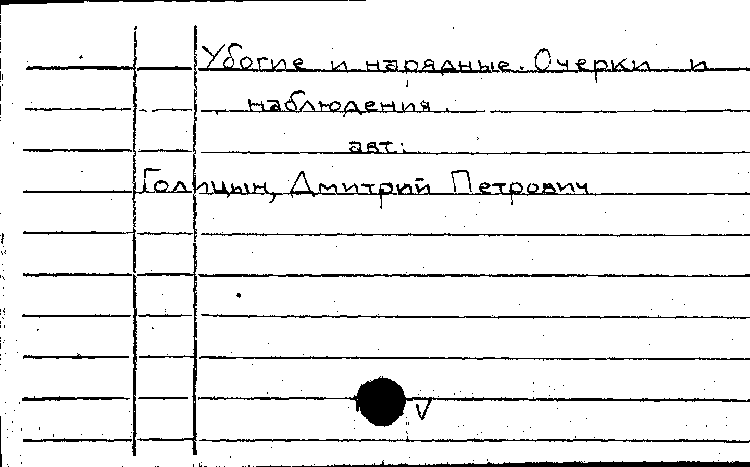 Убогие и нарядные. Очерки и
наблюдения.
авт:
Голицын, Дмитрий Петрович
V